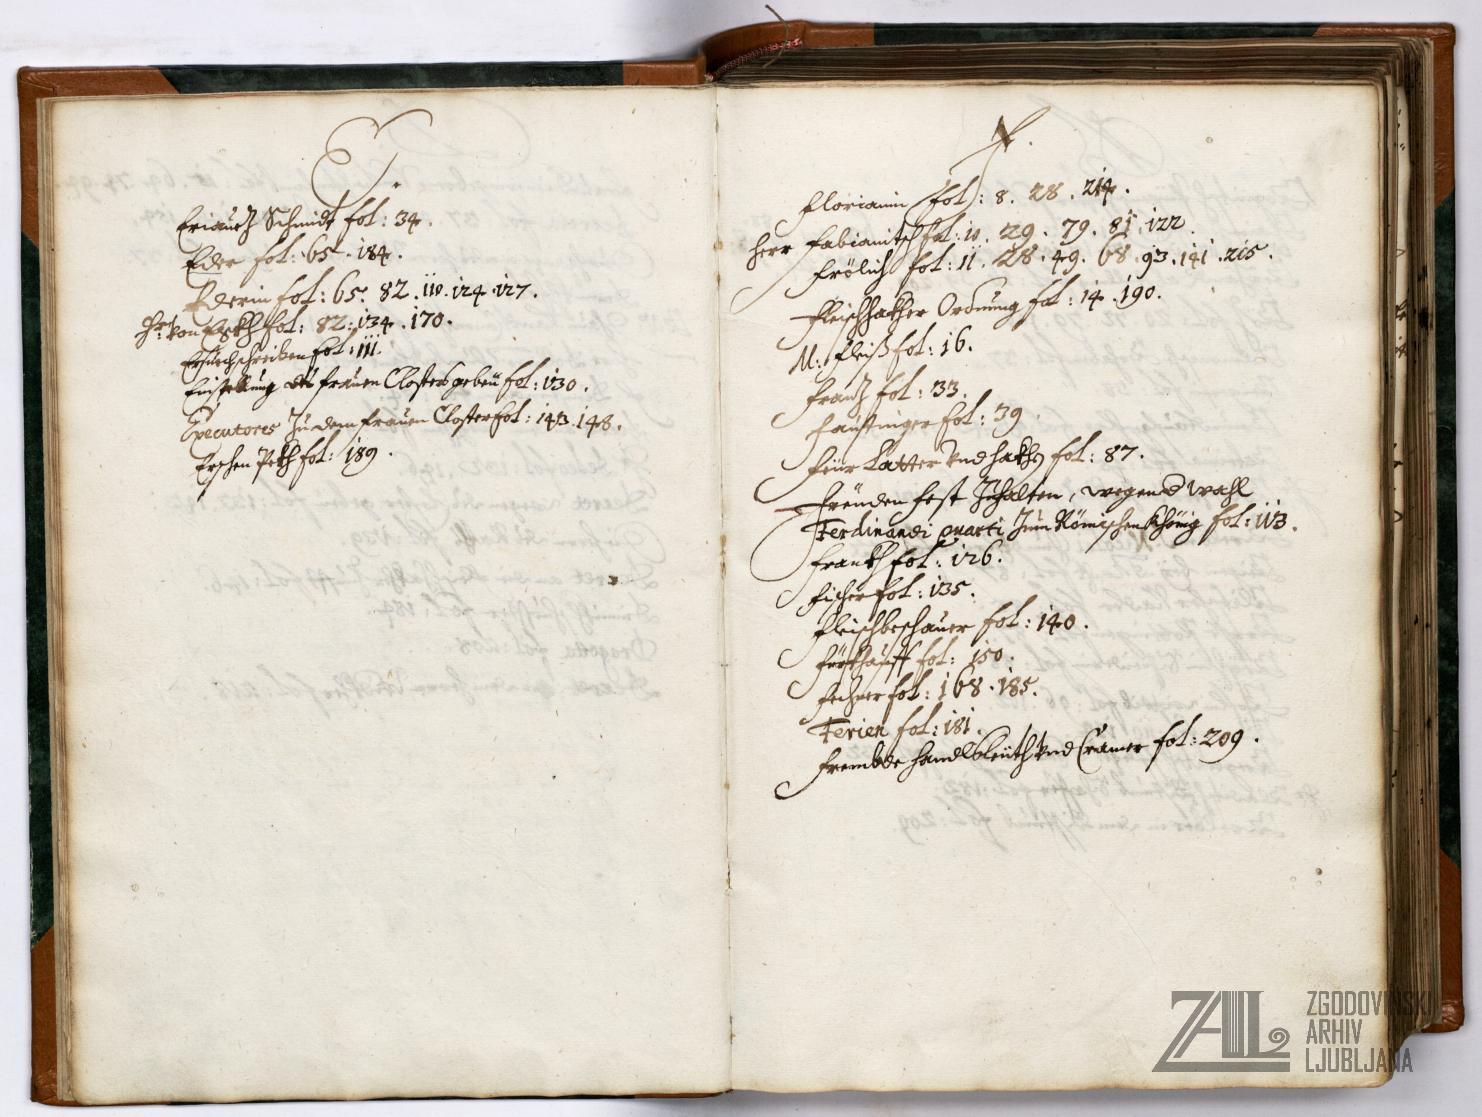 E.
Eriautz Schmidt fol: 34.
Eder fol: 65. 184.
Ederin fol: 65. 82. 110. 124. 127.
Hr: von Egkh fol: 82. 134. 170.
Ersuechschreiben fol: 111.
Einstellung des frauen Closters gebeu fol: 130.
Executores Zu dem frauen Closter fol: 143. 148.
Erschen Pekh fol: 189.
F.
Florianin fol: 8. 28. 214.
Herr Fabianitsch fol: 10. 29. 79. 81. 122.
Frölich fol: 11. 28. 49. 68. 93. 141. 215.
Fleischhakher Ordnung fol: 14. 190.
M: Fleiß fol: 16.
Frantz fol: 33.
Faustinger fol: 39.
Feür Latter vnd hakhen fol: 87.
Freüden fest Zuhalten, wegen d Wahl
Ferdinandi quarti Zum Römischen Khönig fol: 113.
Frankh fol: 126.
Fischer fol: 135.
Fleischbeschauer fol: 140.
Fürkhauff fol: 150.
Fechner fol: 168. 185.
Ferien fol: 181.
Frembde Handlsleüth vnd Cramer fol: 209.
ZAL
ZGODOVINSKI
ARHIV
LJUBLJANA